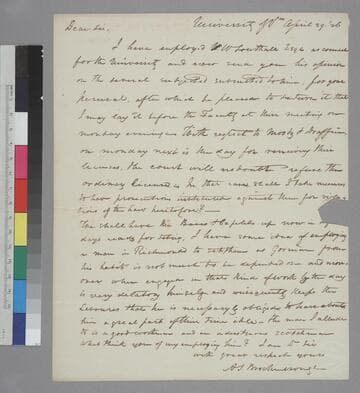 University of Va April 29. 26
Dear Sir,
I have employed W Southall Esqr as counsel
for the University and now send you his opinion
on the several subjects submitted to him, for your
perusal, after which be pleased to return it that
I may lay it before the Faculty at their meeting on
monday evening. With respect to Mosby &
on monday next is the day for renewing their
licenses, the court will no doubt refuse the
ordinary License in
to have prosecutions instituted against them for viola-
tions of the laws heretofore?
We shall have the Bases & Capitels up now in a
days ready for seting, I have some idea of employing
a man in Richmond to set them as Gorman from
his habits is not much to be depended on and more
over when engaged in that kind of work by the day
is very dilatory himself and consequently keeps the
Labourers that he is necessaryly obliged to have about
him a great part of their time idle. the man I allude
to is a good workman and an industrious scotchman
What think you of my employing him? I am Dr Sir
with great respect yours
A S Brockenbrough